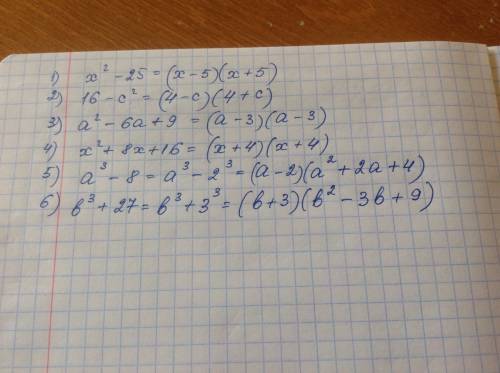 1) x² - 25 = (x - 5)(x + 5)
2) 16 - c² = (4 - c)(4 + c)
3) a² - 6a + 9 = (a - 3)(a - 3)
4) x² + 8x + 16 = (x + 4)(x + 4)
5) a³ - 8 = a³ - 2³ = (a - 2)(a² + 2a + 4)
6) b³ + 27 = b³ + 3³ = (b + 3)(b² - 3b + 9)